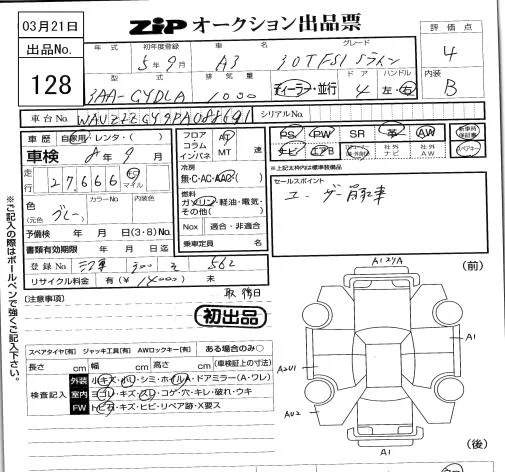 03月21日
ZiP オークション出品票
出品No.
128
年式 初年度登録 車名 グレード
5年9月 A3 30TFSI Sライン
型式 排気量 ドア ハンドル
3AA-GYDLA 1000 ディーラー・並行 4 左・右
評価点
4
内装
B
車台No. WAUZZZGY9PA088691 シリアルNo.
車歴 自家用・レンタ・( )
車検 8年9月
走行 27,666 キロ マイル
色 (元色) グレー カラーNo 内装色
予備検 年 月 日(3・8)No.
書類有効期限 年 月 日迄
登録No. 300 562
リサイクル料金 有(¥ ) 未
フロア AT
コラム
インパネ MT 速
冷房
無・C・AC・AAC
燃料
ガソリン・軽油・電気・
その他( )
Nox 適合・非適合
乗車定員 名
PS PW SR 革 AW
ナビ エアB 社外ナビ 社外AW
新車時保証書
スペアキー
※上記太枠内は標準装備品
セールスポイント
ユーザー買取車
(注意事項)
初出品
スペアタイヤ[有] ジャッキ工具[有] AWロックキー[有] ある場合のみ○
長さ cm 幅 cm 高さ cm (車検証上の寸法)
検査記入
外装 小キズ・小凹・シミ・ホイルA・ドアミラー(A・ワレ)
室内 ヨゴレ・キズ・スレ・コゲ・穴・キレ・破れ・ウキ
FW トビ石・キズ・ヒビ・リペア跡・X要ス
※ご記入の際はボールペンで強くご記入下さい。
(前)
A1
A2U1
AU2
A1
(後)